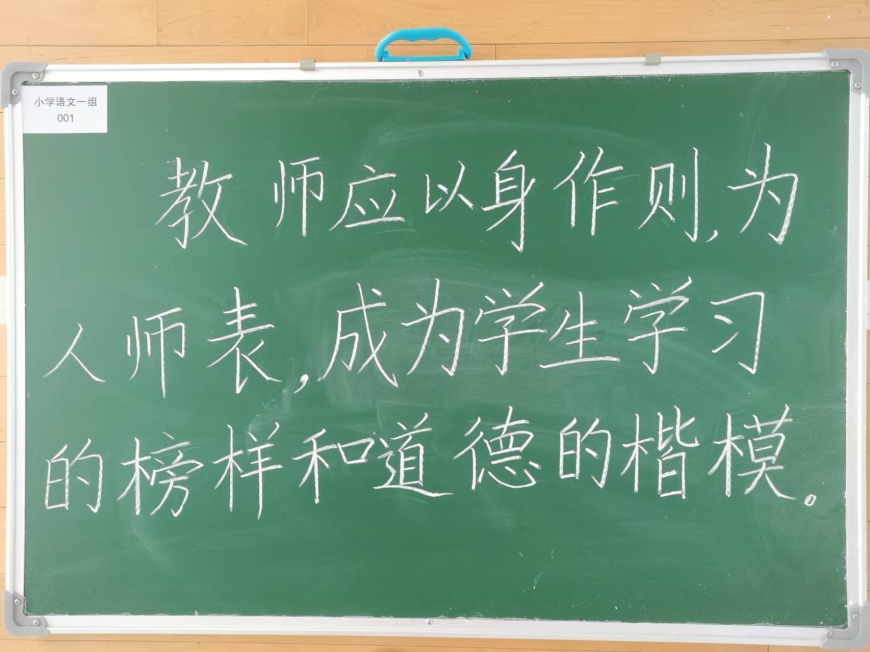 小学语文一组
001
教师应以身作则,为
人师表,成为学生学习
的榜样和道德的楷模。